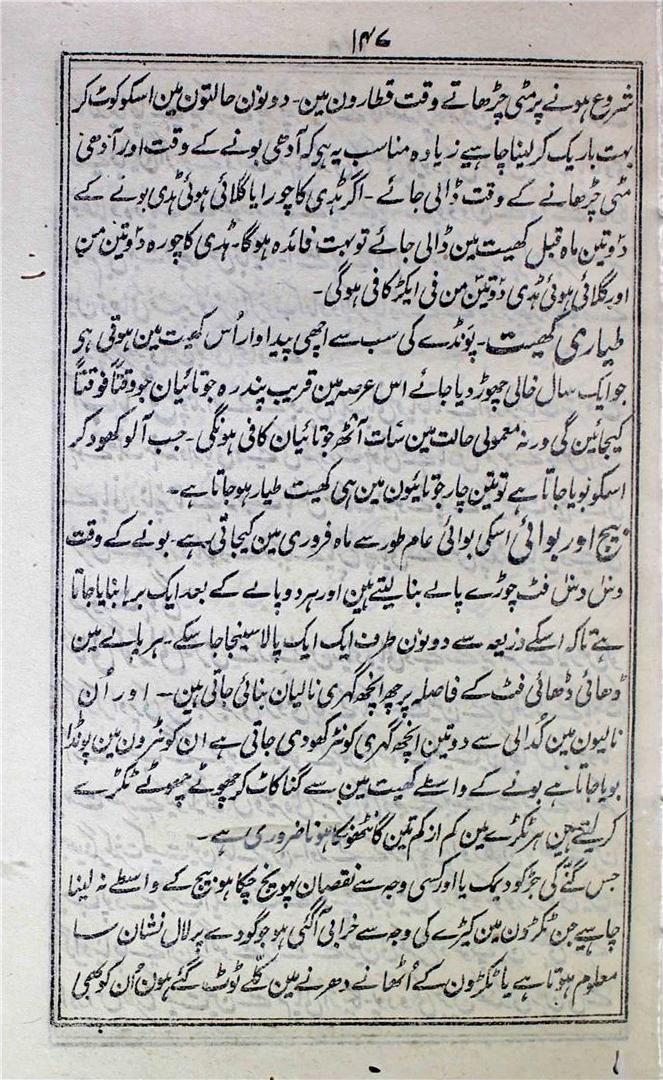 ۱۴۷
شروع ہونے پر مٹی چڑھاتے وقت قطارون مین۔ دونوں حالتون مین اسکو کوٹ کر
بہت باریک کرلینا چاہیے زیادہ مناسب یہ ہی کہ آدھی بونے کے وقت اور آدھی
مٹی چڑھانے کے وقت ڈالی جائے۔ اگر ہڈی کا چورا یا گلائی ہوئی ہڈی بونے کے
دو تین ماہ قبل کھیت مین ڈالی جائے تو بہت فائدہ ہوگا۔ ہڈی کا چورہ دو تین من
اور گلائی ہوئی ہڈی دو تین من فی ایکڑ کافی ہوگی۔
طیاری کھیت۔ پونڈے کی سب سے اچھی پیداوار اُس کھیت مین ہوتی ہی
جو ایک سال خالی چھوڑ دیا جائے اس عرصہ مین قریب پندرہ جوتائیان جو وقتاً فوقتاً
کیجائین گی ورنہ معمولی حالت مین سات آٹھ جوتائیان کافی ہونگی۔ جب آلو کھود کر
اسکو بویا جاتا ہے تو تین چار جوتائیون مین ہی کھیت طیار ہوجاتا ہے۔
بیج اور بوائی اسکی بوائی عام طور سے ماہ فروری مین کیجاتی ہے۔ بونے کے وقت
دس دس فٹ چوڑے پالے بنا لیتے ہین اور ہر دو پالے کے بعد ایک برہا بنایا جاتا
ہے تاکہ اسکے ذریعہ سے دونوں طرف ایک ایک پالا سینچا جا سکے۔ ہر پالے مین
ڈھائی ڈھائی فٹ کے فاصلہ پر چھ انچھ گہری نالیان بنائی جاتی ہین۔ اور اُن
نالیون مین کُدالی سے دو تین انچھ گہری کونڑ کھودی جاتی ہے ان کونڑون مین پونڈا
بویا جاتا ہے بونے کے واسطے کھیت مین سے گنا کاٹ کر چھوٹے چھوٹے ٹکڑے
کر لیتے ہین ہر ٹکڑے مین کم از کم تین گانٹھونکا ہونا ضروری ہے۔
جس گنّے کی جڑ کو دیمک یا اور کسی وجہ سے نقصان پہونچ چکا ہو بیج کے واسطے نہ لینا
چاہیے جن ٹکڑون مین کیڑے کی وجہ سے خرابی آگئی ہو جو گودے پر لال نشان سا
معلوم ہوتا ہے یا ٹکڑون کے اُٹھانے دھرنے مین کلّے ٹوٹ گئے ہون اُن کو کبھی